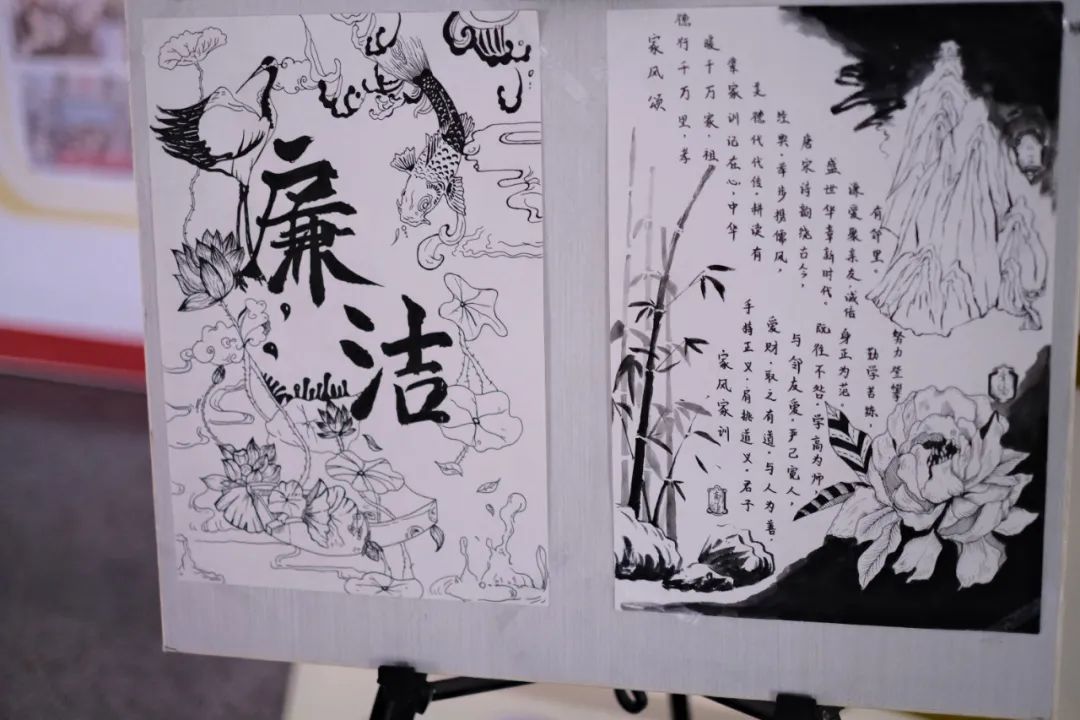 廉
洁
家风颂
德行千万里，孝
暖千万家。祖
辈家训记在心。中华
美德代代传。耕读有
经典，举步携儒风，
唐宋诗韵绕古今，
盛世华章新时代。
谦爱聚亲友，诚信
有邻里。
家风家训
手持正义，肩挑道义。君子
爱财，取之有道。与人为善，
与邻友爱。严己宽人，
既往不咎。学高为师
身正为范。
勤学苦练，
努力坚攀